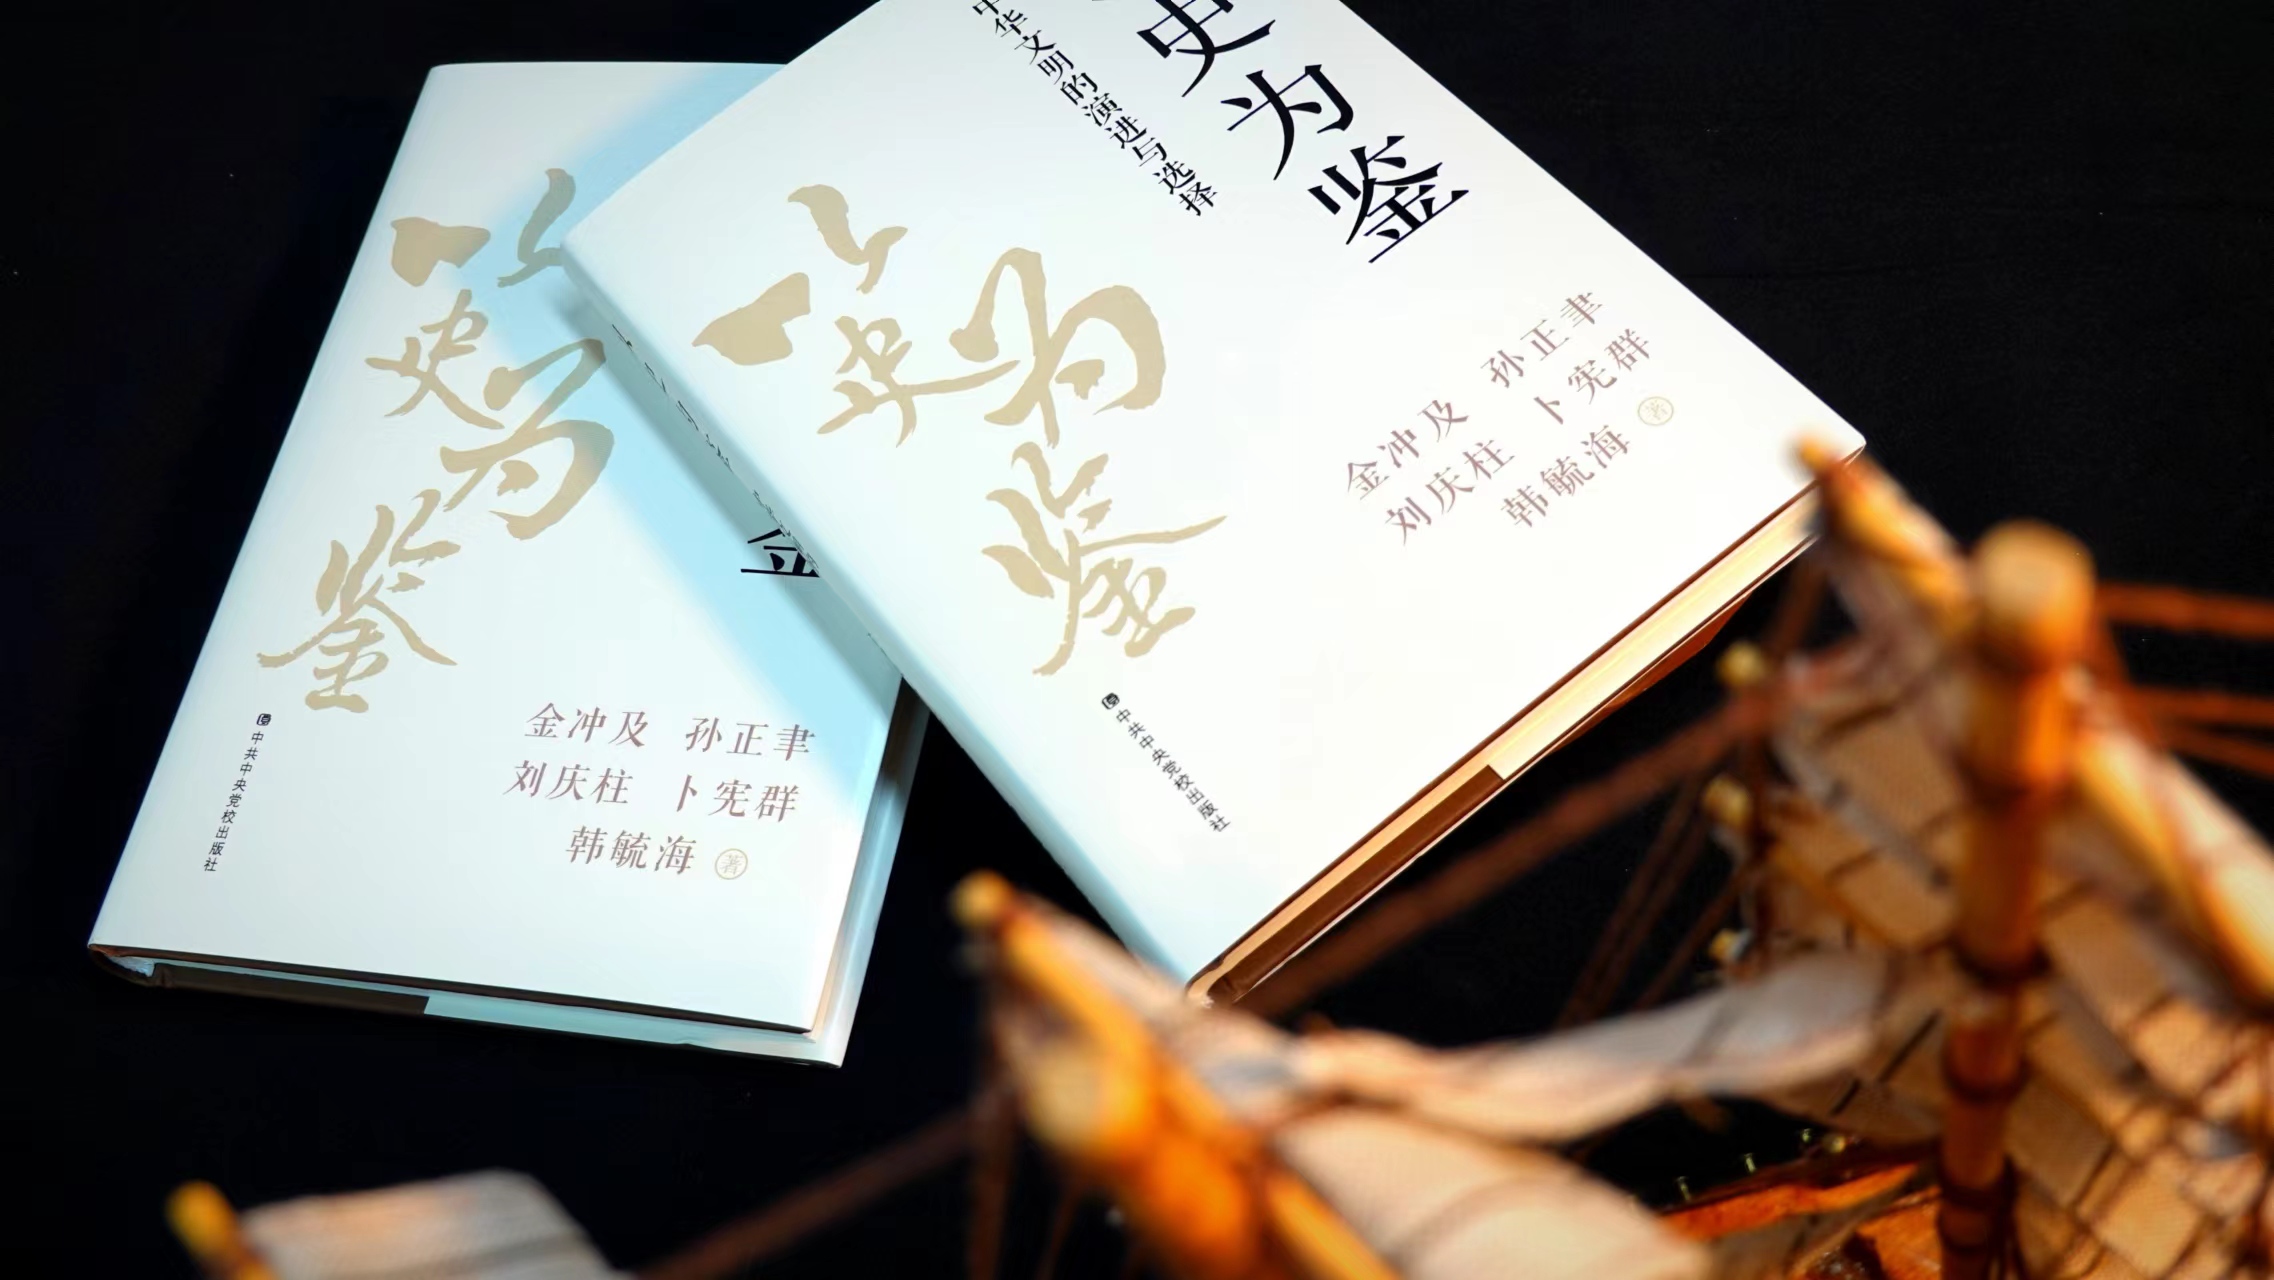 以史为鉴
金冲及 孙正聿
刘庆柱 卜宪群
韩毓海 著
中共中央党校出版社
史为鉴
中华文明的演进与选择
以史为鉴
金冲及 孙正聿
刘庆柱 卜宪群
韩毓海 著
中共中央党校出版社